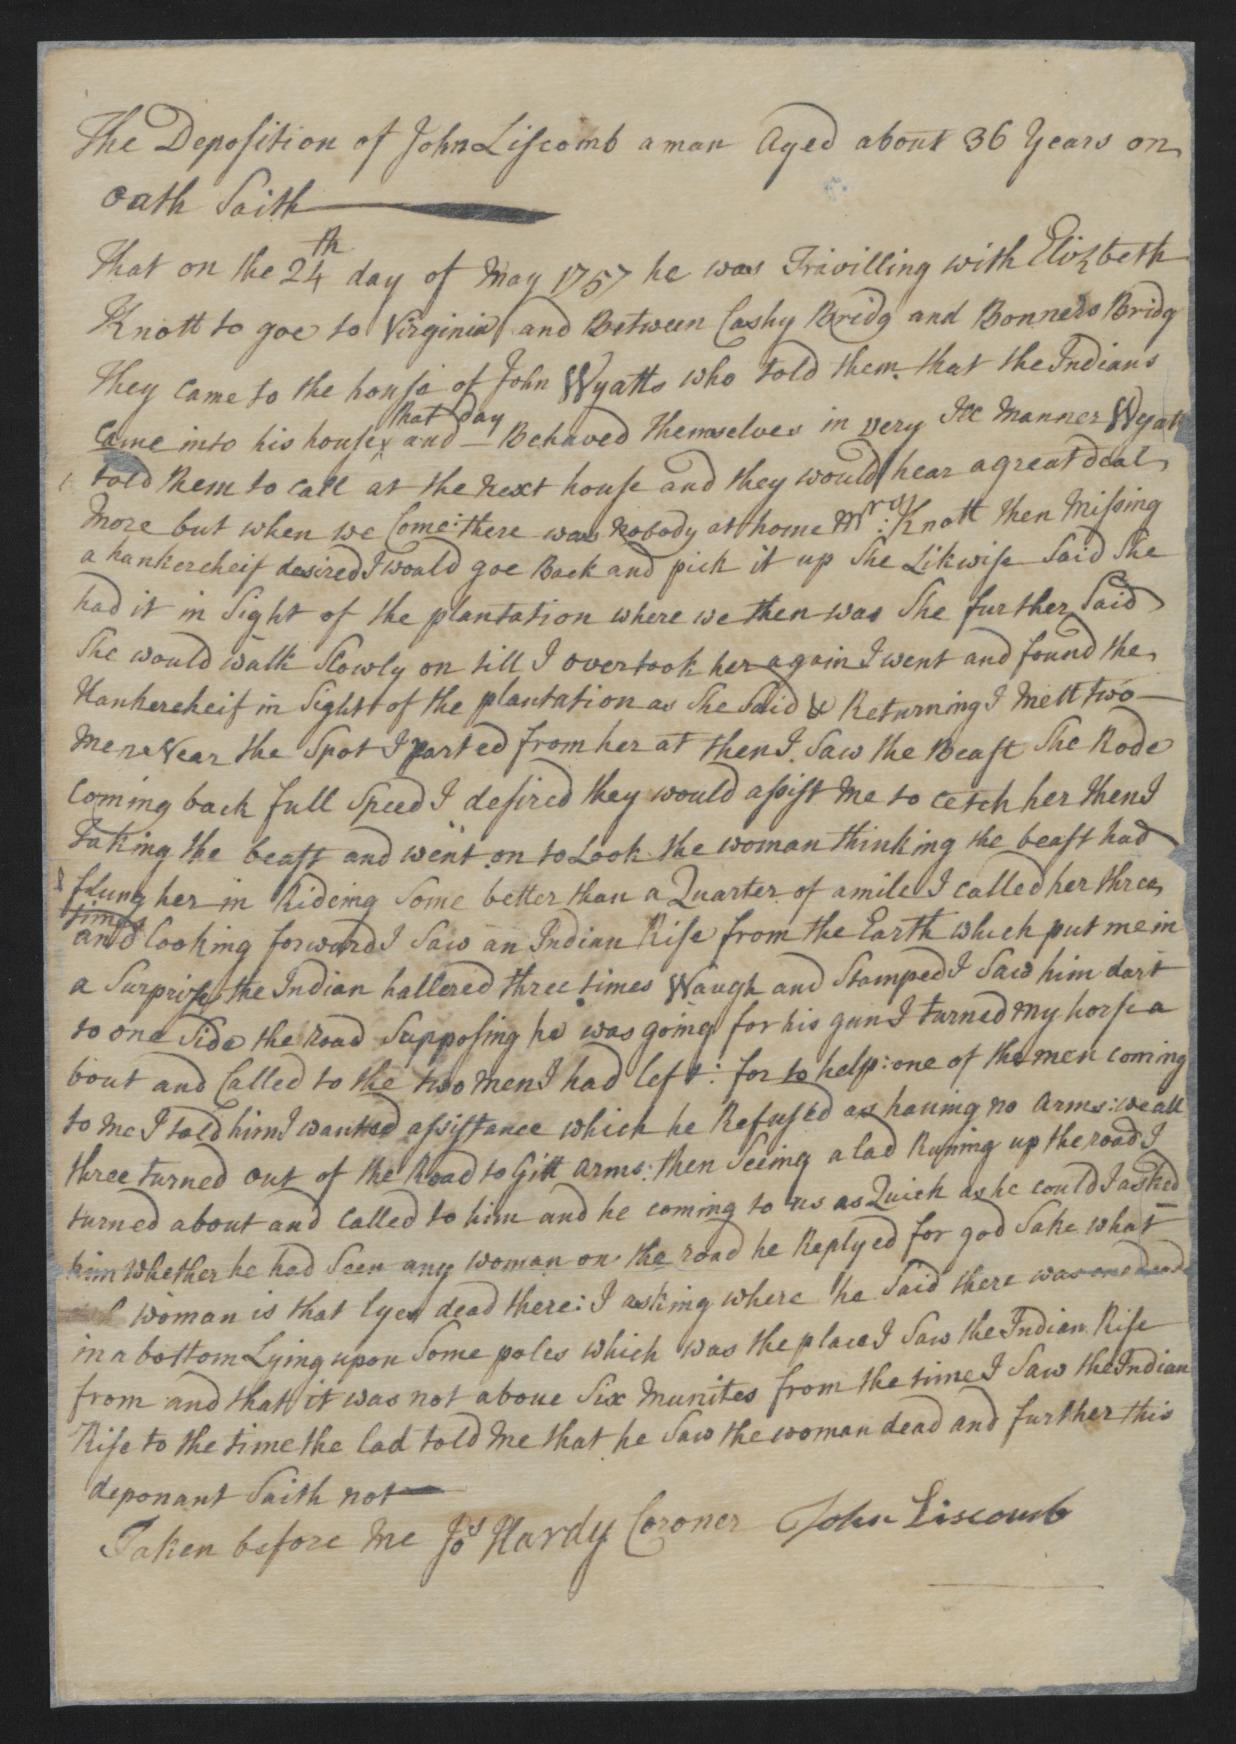 The Deposition of John Liscomb a man Aged about 36 Years on
oath Saith
That on the 24th day of May 1757 he was Travilling with Elizbeth
Knott to goe to Virginia and Between Cashy Bridg and Bonners Bridg
They came to the house of John Wyatts who told them that the Indians
that day
came into his house and Behaved themselves in very Ill Manner Wyatt
told them to call at the next house and they would hear a great deal
more but when we Come: there was nobody at home Mrs: Knott then Missing
a hankercheif desired I would goe Back and pick it up She Likwise Said She
had it in Sight of the plantation where we then was She further Said
She would walk Slowly on till I overtook her again I went and found the
Hankercheif in Sight of the plantation as She Said & Returning I mett two
men Near the Spot I parted from her at then I Saw the Beast She Rode
Coming back full Speed I desired they would assist me to cetch her then I
Taking the beast and went on to Look the woman thinking the beast had
flung her in Rideing Some better than a Quarter of a mile I called her three
times
and looking forward I Saw an Indian Rise from the Earth which put me in
a Surprise the Indian hallered three times Waugh and Stamped I Saw him dart
to one Side the road Supposing he was going for his gun I turned my horse a
bout and Called to the two men I had left: for to help: one of the men coming
to me I told him I wanted assistance which he Refused as having no arms: we all
three turned out of the Road to Gitt arms: then Seeing a lad Runing up the road I
turned about and called to him and he coming to us as Quick as he could I asked
him whether he had Seen any woman on the road he Replyed for god Sake what
woman is that lyes dead there: I asking where he Said there was one dead
in a bottom Lying upon Some poles which was the place I Saw the Indian Rise
from and that it was not above Six Munites from the time I Saw the Indian
Rise to the time the lad told me that he Saw the woman dead and further this
deponant Saith not
Taken before me Jos Hardy Coroner John Liscomb